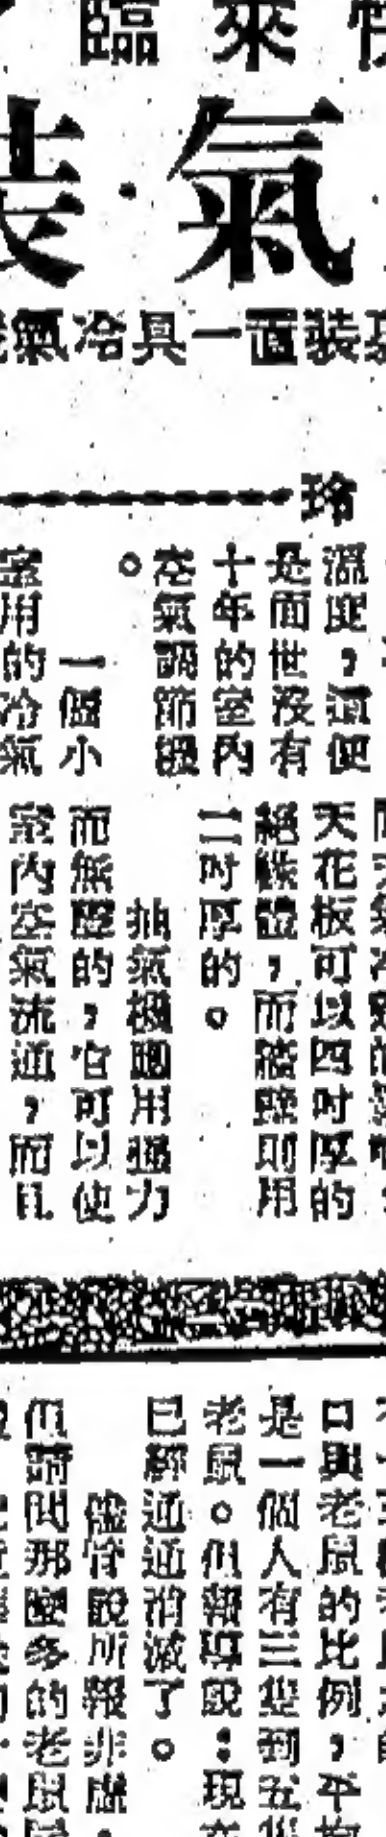 臨來快
裝·氣
氣冷具一置裝
玲
溫度,這便
是面世沒有
十年的室內
空氣調節器
。
一個小
室用的冷氣
天花板可以四吋厚的
絕緣體,而牆壁則用
二吋厚的。
抽氣機應用強力
而無聲的,它可以使
室內空氣流通,而且
口與老鼠的比例,平均
是一個人有三隻到五隻
老鼠。但報導說:現在
已經通通消滅了。
儘管說所報非虛,
但請問那麼多的老鼠